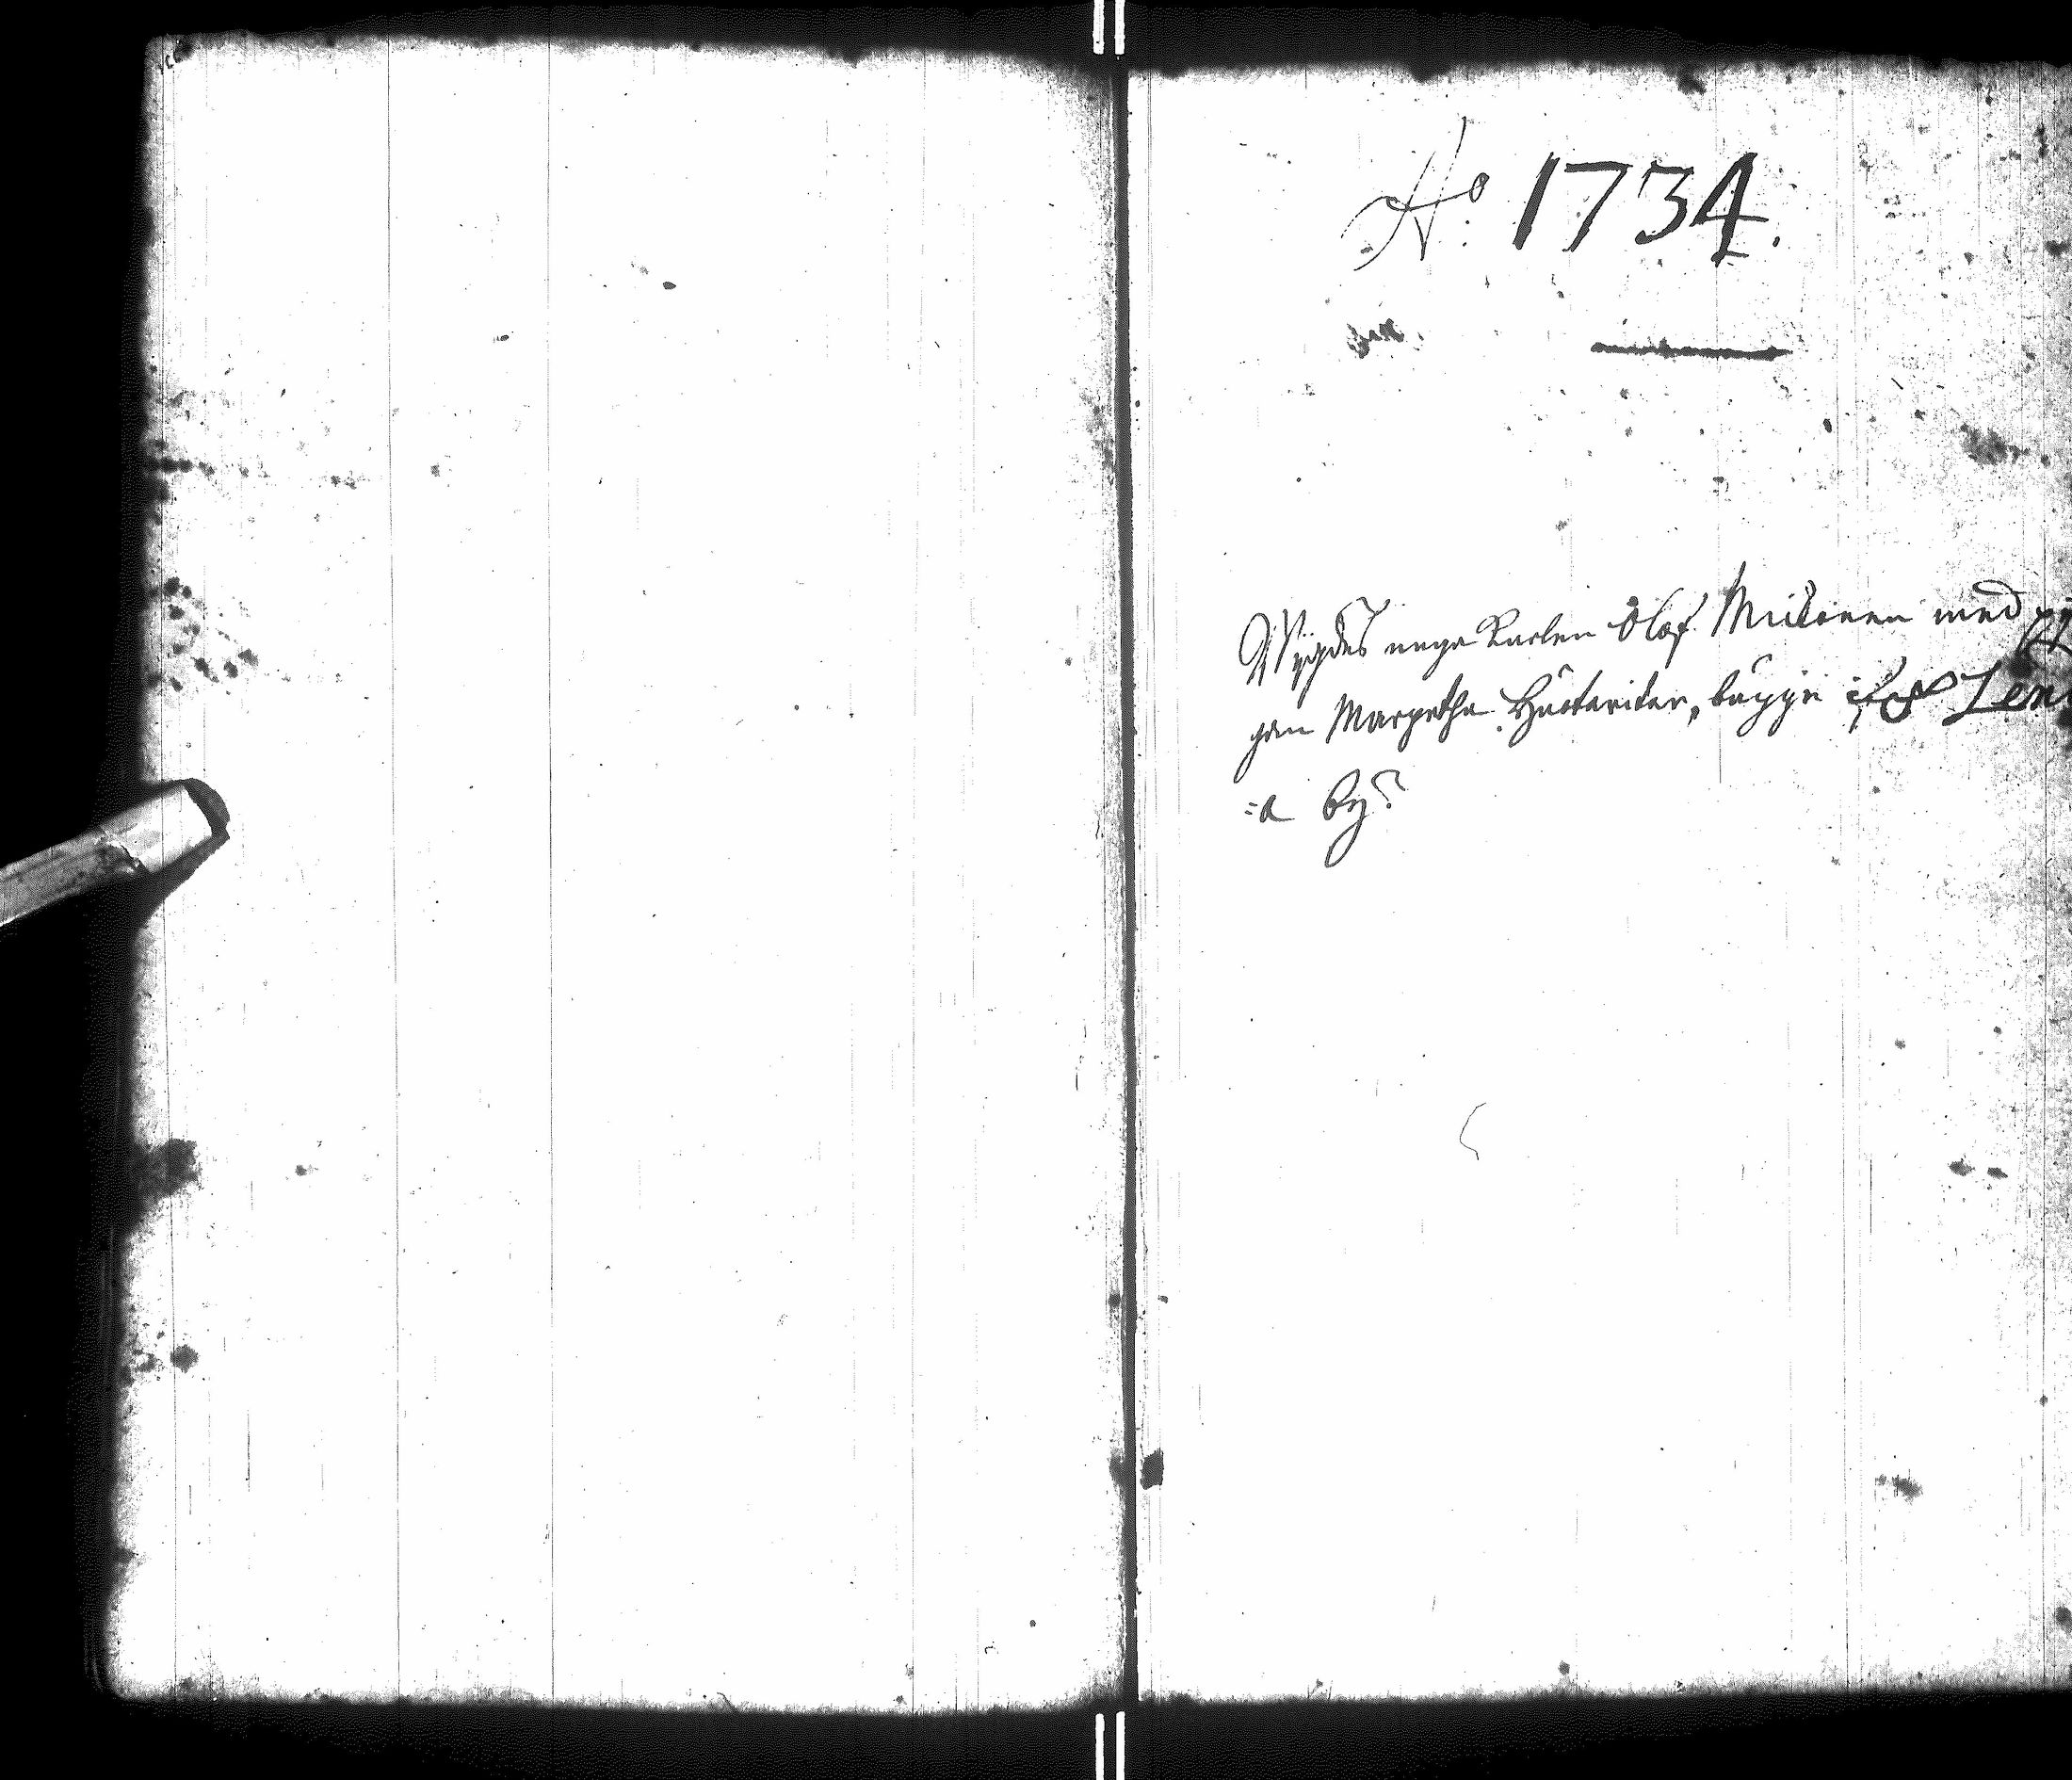 Ao: 1734.
Wigdes unga Karlen Olof Mickonen med
gan Margetha Huotaritar, bägge ifrå Len
=a by?